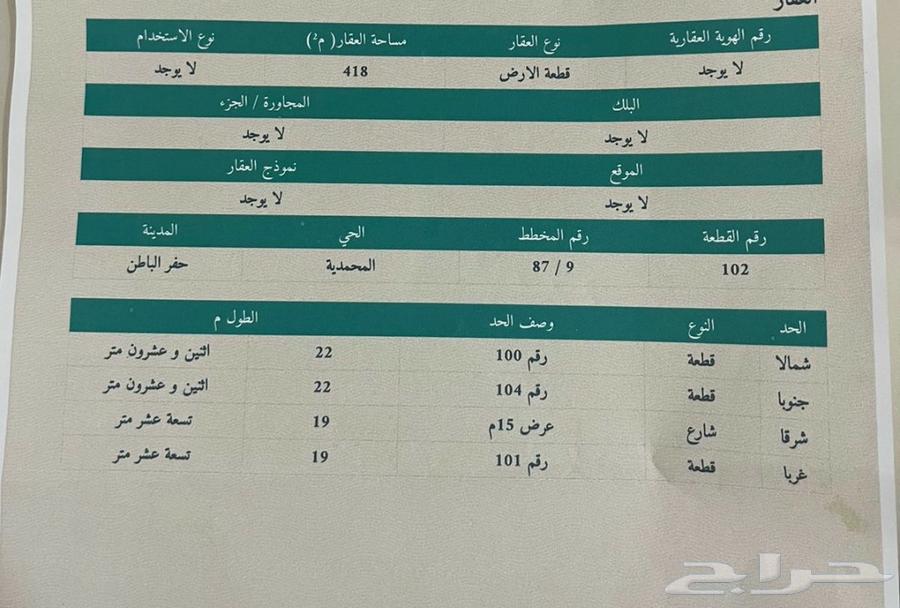 العقار
رقم الهوية العقارية نوع العقار مساحة العقار( م²) نوع الاستخدام
لا يوجد قطعة الارض 418 لا يوجد
البلك المجاورة / الجزء
لا يوجد لا يوجد
الموقع نموذج العقار
لا يوجد لا يوجد
رقم القطعة رقم المخطط الحي المدينة
102 9 / 87 المحمدية حفر الباطن
الحد النوع وصف الحد الطول م
شمالا قطعة رقم 100 22 اثنين و عشرون متر
جنوبا قطعة رقم 104 22 اثنين و عشرون متر
شرقا شارع عرض 15م 19 تسعة عشر متر
غربا قطعة رقم 101 19 تسعة عشر متر
حراج